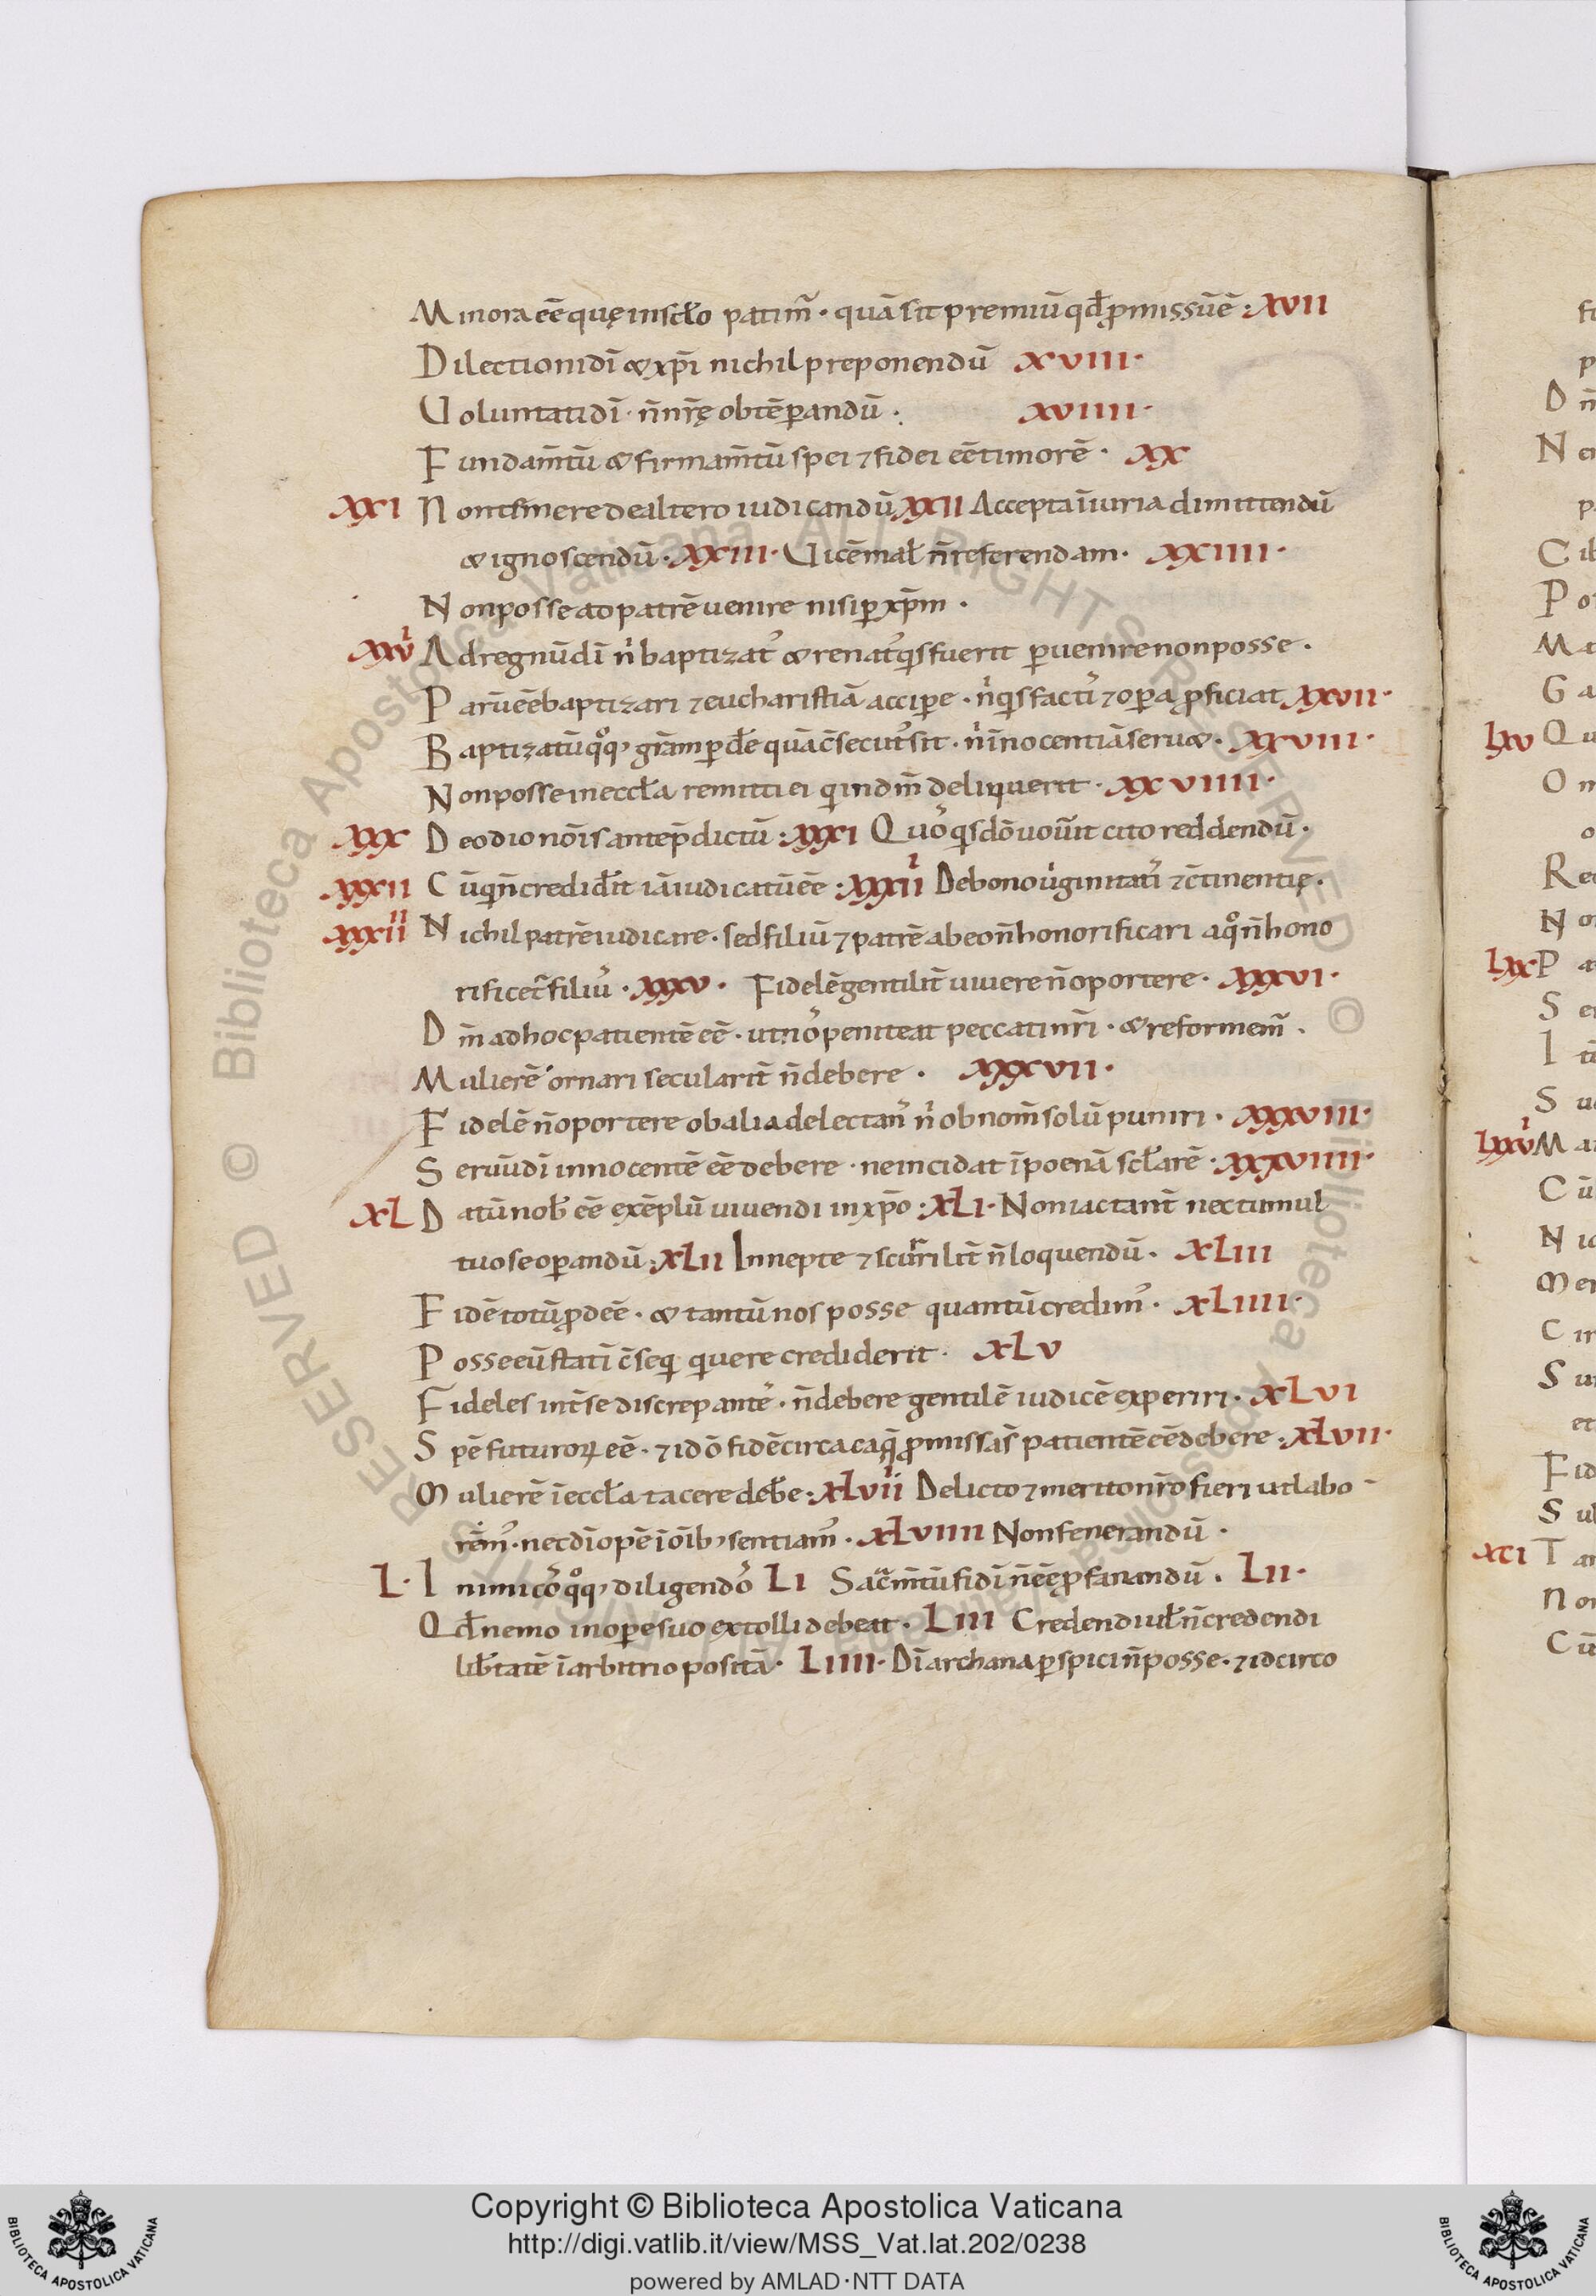 Minora eē quę in scło patim̃ · quā sit premiū qđ ꝓmissū ē : XVII
Dilectioni dī & xp̄i nichil preponendū XVIII·
Voluntati dī · n̄ nr̄ę obtēꝑandū · XVIIII·
Fundam̄tū & firmam̄tū spei ⁊ fidei eē timorē · XX
XXI Non temere de altero iudicandū XXII Accepta īiuria dimittendū
& ignoscendū · XXIII· Vicē mał n̄ referendam · XXIIII·
Non posse ad patrē uenire nisi ꝑ xp̄m ·
XXVI Ad regnū dī nͥ baptizatᷤ & renatᷤ q̇s fuerit ꝑuenire non posse ·
Parū eē baptizari ⁊ eucharistiā acciꝑe · nͥ q̇s factiᷤ ⁊ oꝑa ꝓficiat XXVII·
Baptizatū qͦq, gr̄am ꝑđe quā c̄secutᷤ sit · nͥ īnocentiā seru& · XXVIII·
Non posse in eccła remitti ei qͥ in dm̄ deliquerit · XXVIIII·
XXX De odio nōīs ante p̄dictū : XXXI Quoᷤ q̇s dō uou̅it cito reddendū ·
XXXII Cū qͥ n̄ crediđit iā iudicatū eē : XXXIII De bono uͥginitatiᷤ ⁊ c̄tinentię ·
XXXIIII Nichil patrē iudicare · sed filiū ⁊ patrē ab eo n̄ honorificari a qͦ n̄ hono
rificet̃ filiuᷤ · XXXV · Fidelē gentilit̃ uiuere n̄ oportere · XXXVI·
Dm̄ ad hoc patientē eē · ut noᷤ peniteat peccati nr̄i · & reformem̃ ·
Mulierē ornari secularit̃ n̄ debere · XXXVII·
Fidelē n̄ oportere ob alia delectaᷤ nͥ ob nom̃ solū puniri · XXXVIII·
Seruū dī innocentē eē debere · ne incidat ī poenā scłarē · XXXVIIII·
XL Datū nob̃ eē exēplū uiuendi in xp̄o : XLI· Non iactant̃ nec tumul
tuose oꝑandū : XLII Innepte ⁊ scurrilit̃ n̄ loquendū · XLIII
Fidē totū ꝓdeē · & tantū nos posse quantū credimᷤ · XLIIII·
Posse eū statī c̄seqͥ qͥ uere crediderit · XLV
Fideles int̃ se discrepanteᷤ · n̄ debere gentilē iudicē experiri · XLVI
Spē futuroꝝ eē · ⁊ idō fidē circa ea q̄ ꝓmissa s̄ patientē eē debere · XLVII·
Mulierē ī eccła tacere deb̃e · XLVIII Delicto ⁊ merito nr̄o fieri ut labo-
rēmᷤ · nec dī opē ī oīb, sentiamᷤ · XLVIIII Non fenerandū ·
L· Inimicoᷤ qͦq, diligendoᷤ LI Sac̃m̄tū fidī n̄ eē ꝓfanandū · LII·
Qđ nemo in oꝑe suo extolli debeat · LIII Credendi uł n̄ credendi
lib̃tatē ī arbitrio positā · LIIII· Dī archana ꝑspici n̄ posse · ⁊ idcirco
lxv
lxx
lxxvi
xci
Copyright © Biblioteca Apostolica Vaticana
http://digi.vatlib.it/view/MSS_Vat.lat.202/0238
powered by AMLAD·NTT DATA
BIBLIOTECA APOSTOLICA VATICANA
BIBLIOTECA APOSTOLICA VATICANA